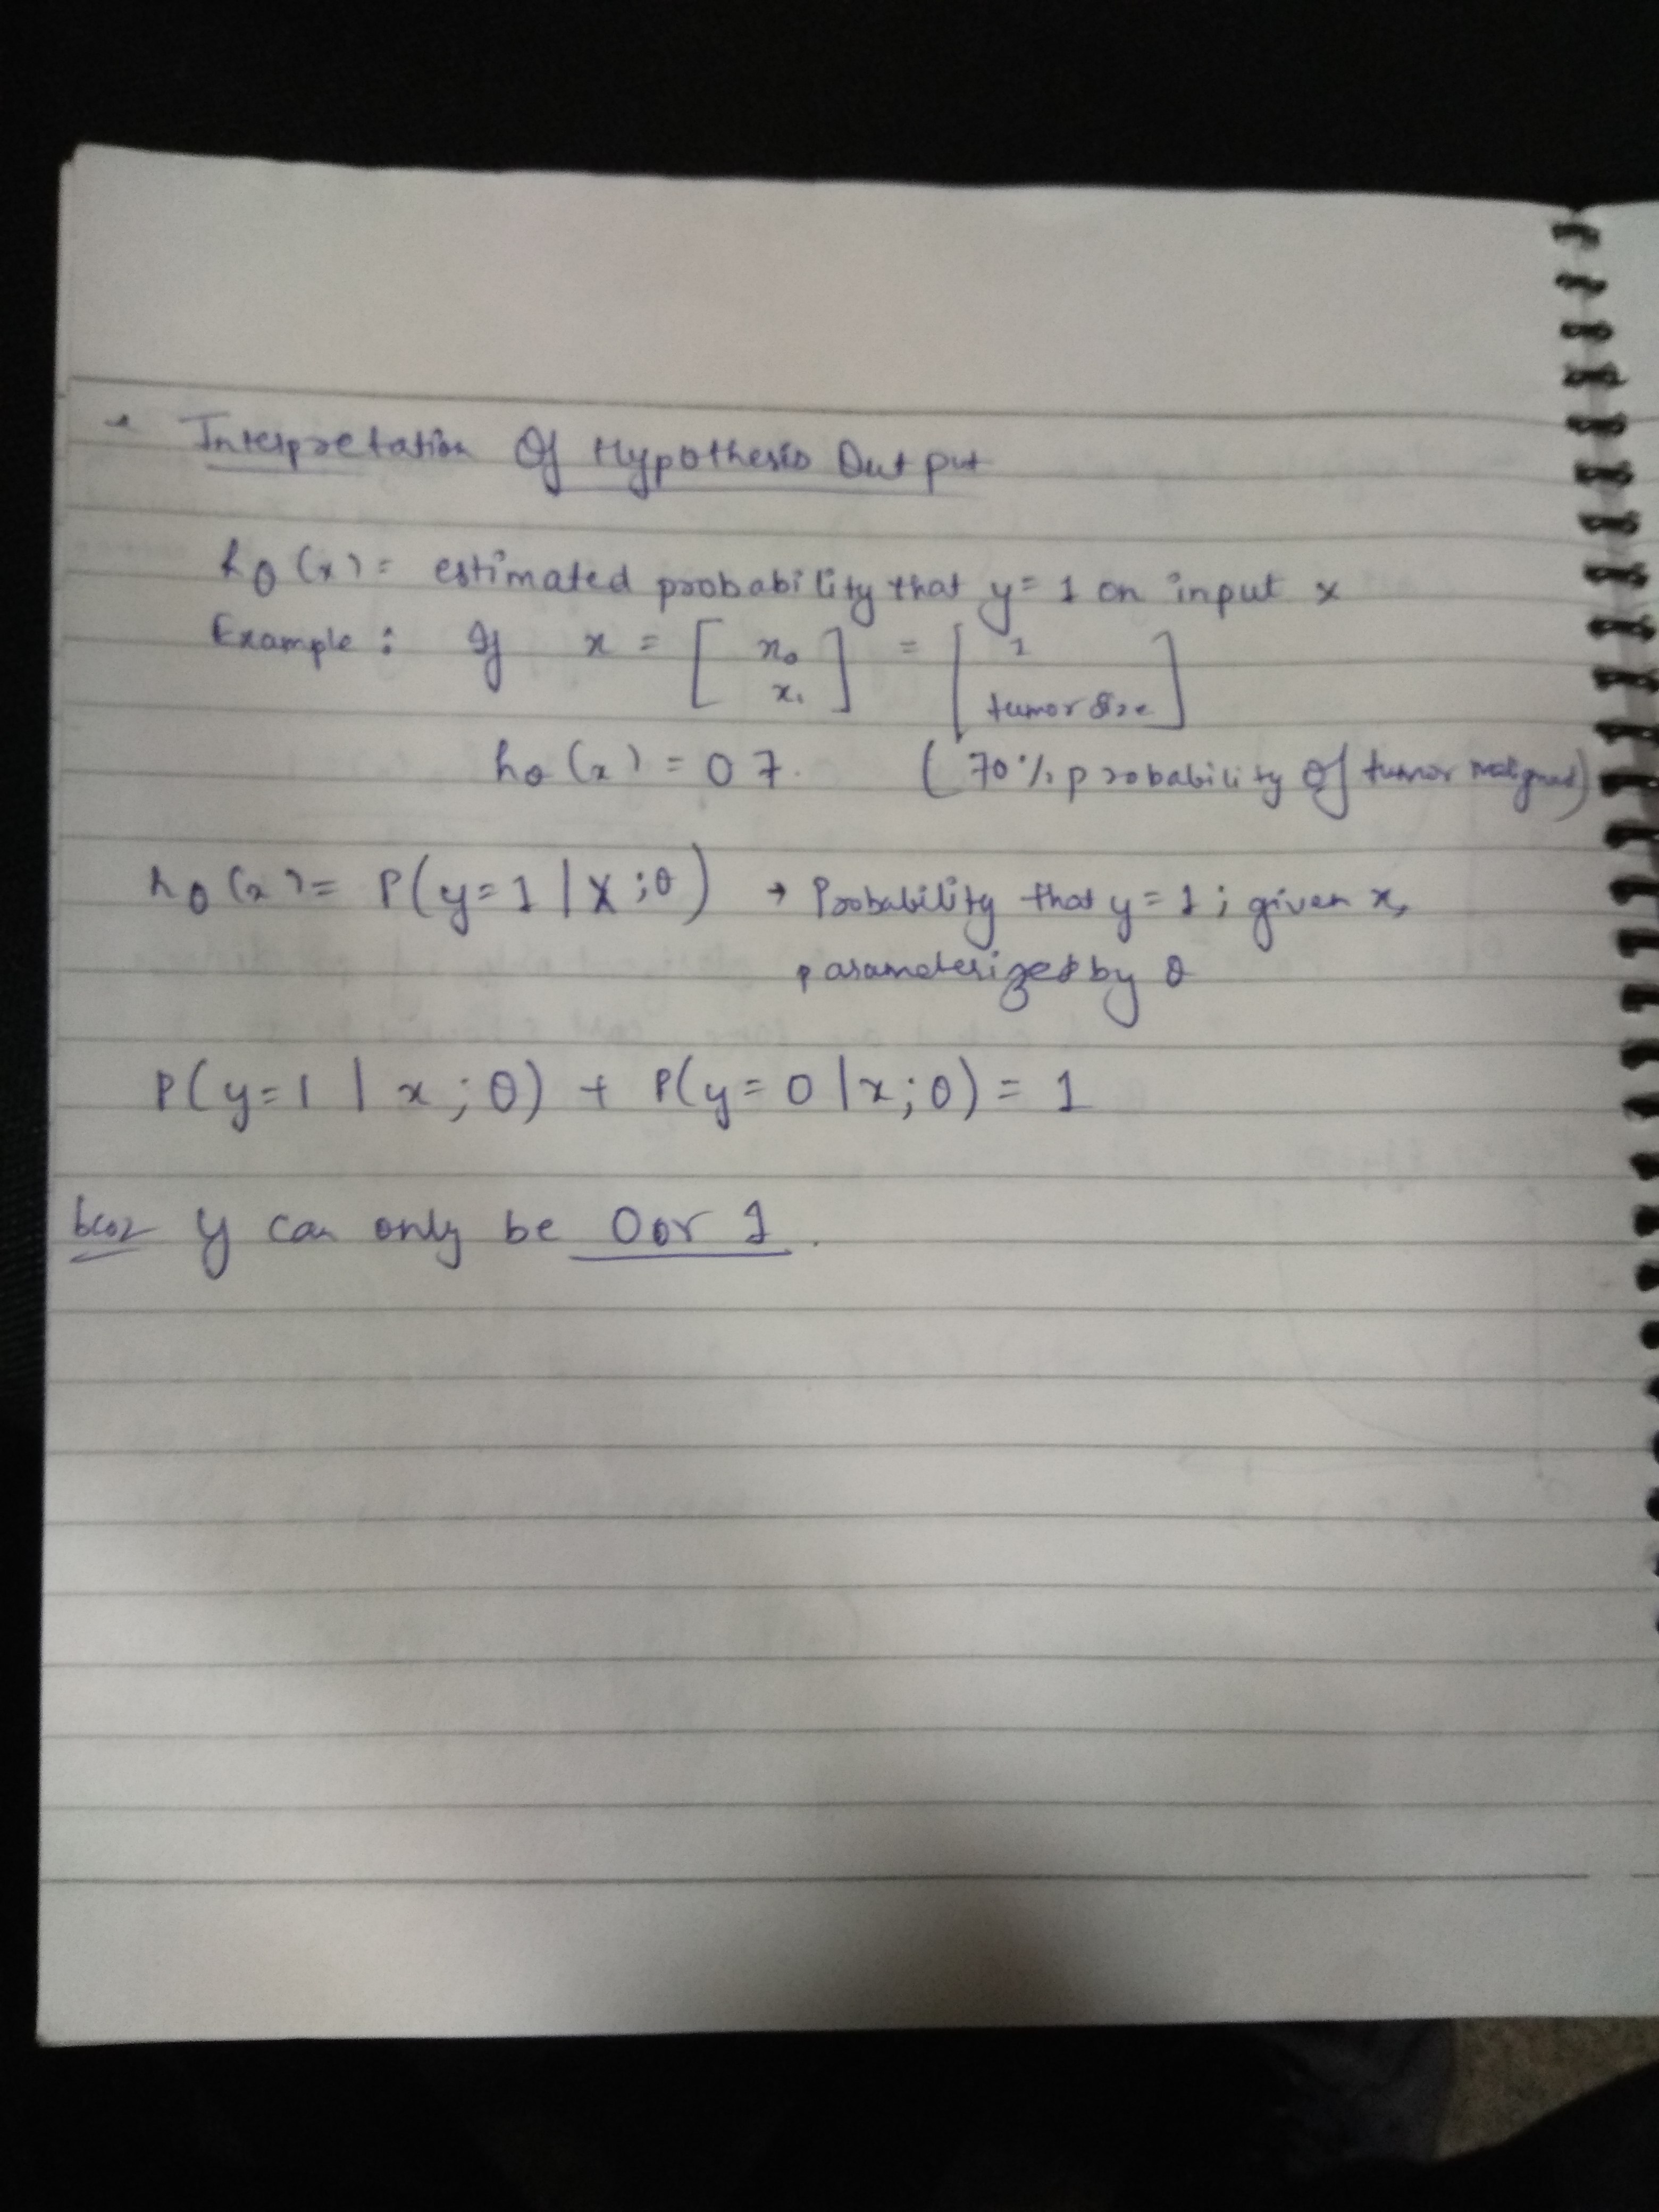 Interpretation Of Hypothesis Output
hθ(x) = estimated probability that y = 1 on input x
Example : If x = [ x₀ x₁ ] = [ 1 tumor size ]
hθ(x) = 0 7. (70% probability of tumor malignant)
hθ(x) = P(y=1 | x ; θ) → Probability that y = 1 ; given x,
parameterized by θ
P(y=1 | x ; θ) + P(y=0 | x ; θ) = 1
bcoz y can only be 0 or 1.